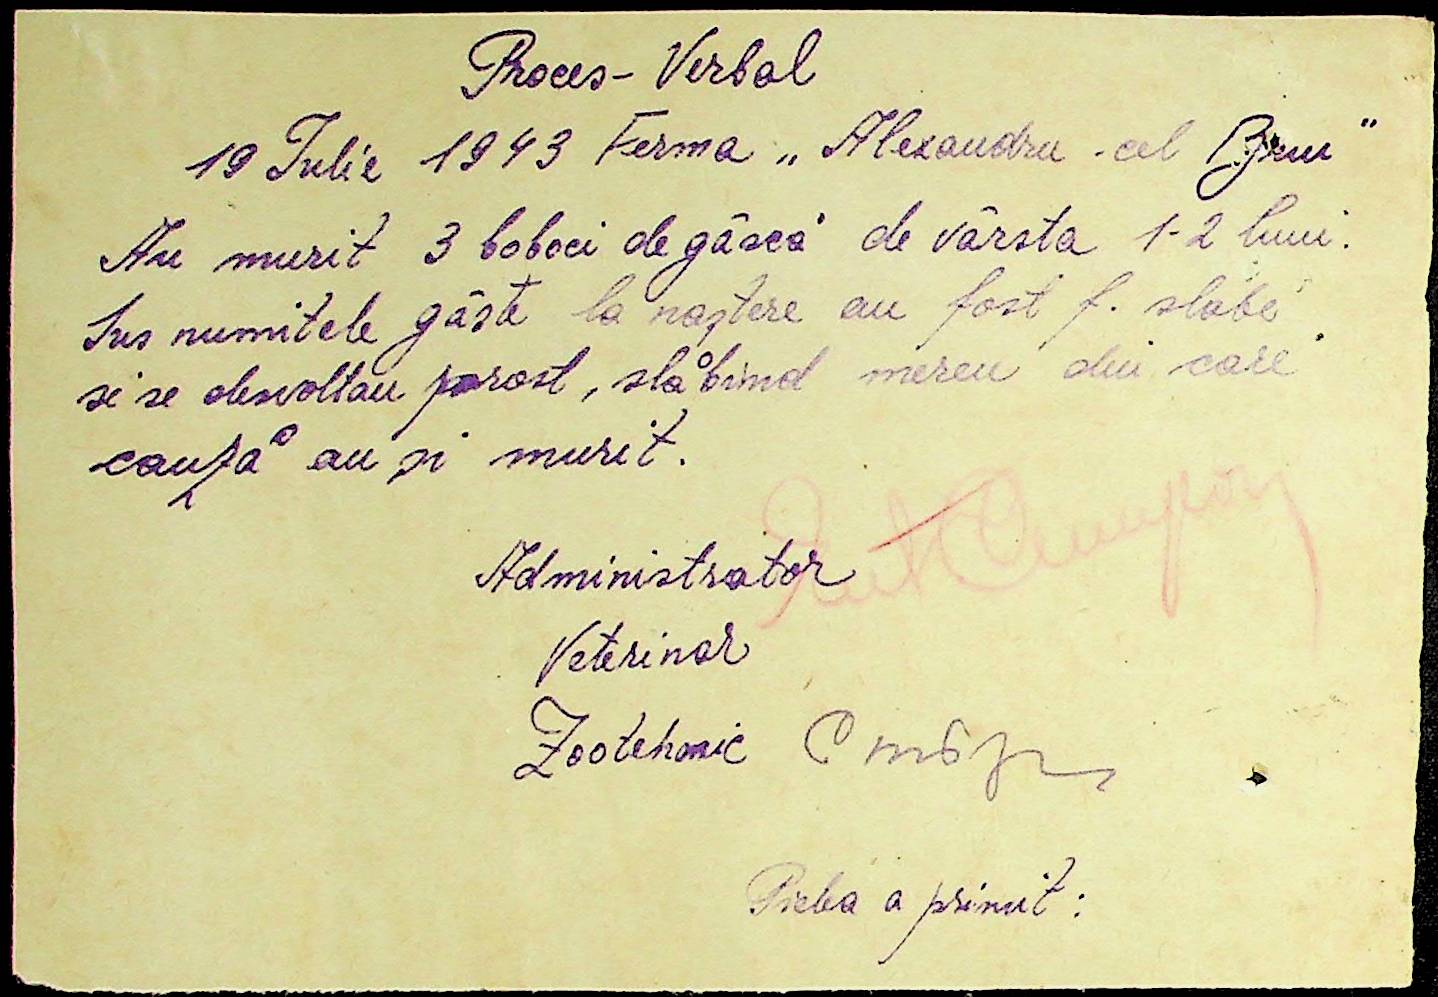 Proces-Verbal
19 Iulie 1943 Ferma „Alexandru-cel Bun"
Au murit 3 boboci de gâscă de vârsta 1-2 luni.
Sus numitele gâste la naștere au fost f. slabe
si se desvoltau prost, slăbind mereu din care
cauză au și murit.
Administrator
Veterinar
Zootehnic
a primit: